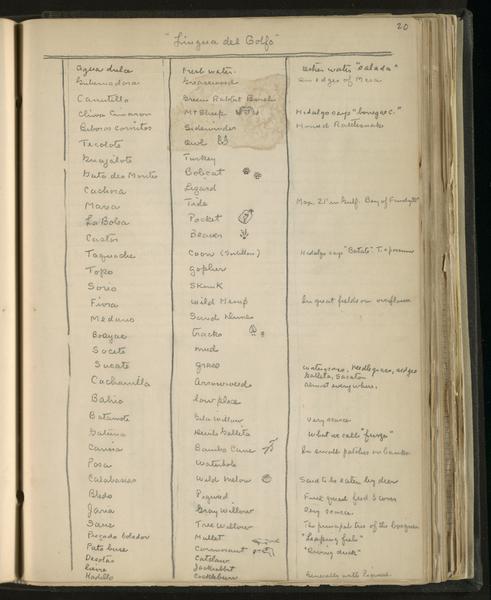 20
"Lingua del Golfo"
Agua dulce Fresh water Other water "salada"
Gubernadora Greasewood On edges of Mesa
Canutillo Green Rabbit Brush
Chiva Cimaron Mt Sheep Hidalgo says "borrego C."
Biboras cornitos Sidewinder Horned Rattlesnake
Tecolote Owl
Guajalote Turkey
Gato des Montes Bobcat
Cachora Lizard
Marea Tide Max 21' in Gulf. Bay of Fundy
La Bolsa Pocket
Castor Beaver
Taquache Coon Hidalgo says
Topo Gopher
Sorio Skunk
Wild Hemp In great fields on overflow
Medano Sand Dunes
tracks
Socete mud
Sacate grass Watergrass, Needlegrass, sedges
Galleta, Sacaton
Cachanilla Arrowweed Almost everywhere.
Bahio low place
Batamote Gila Willow Very scarce
Galleta What we call
Carriso Bamboo Cane In small patches on banks
Posa Waterhole
Calabasas Wild Melon Said to be eaten by deer
Bledo Pigweed Fine green feed
Jaria Gray Willow Very scarce
Sauz Tree Willow The principal tree of the bosques
Pescado bolador Mullet "Leaping fish"
Pato buse Cormorant "Diving duck"
Catclaw
Lievre Jackrabbit
Cocklebur Generally with